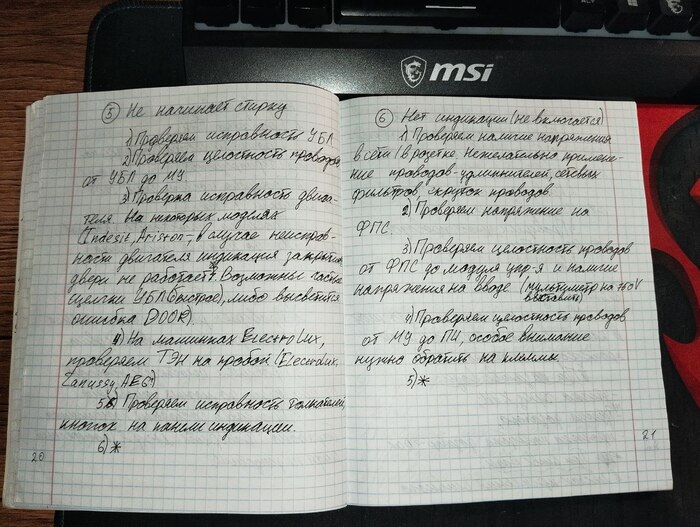 msi
5 Не начинает стирку
1) Проверяем исправность УБЛ
2) Проверяем целостность проводов
от УБЛ до МУ.
3) Проверка исправность двига-
теля. На некоторых моделях
(Indesit, Ariston-, в случае неисправ-
ности двигателя индикация закрытия
двери не работает). Возможны частые
щелчки УБЛ (быстрое), либо высветится
ошибка DOOR).
4) На машинках Electrolux,
проверяем ТЭН на пробой (Electrolux,
Zanussy, AEG)
5) Проверяем исправность толкателей,
кнопок на панели индикации.
6) *
20
6 Нет индикации (не включается)
1) Проверяем наличие напряжения
в сети (в розетке. Нежелательно примене-
ние проводов-удлинителей, сетевых
фильтров, скруток проводов.
2) Проверяем напряжение на
ФПС.
3) Проверяем целостность проводов
от ФПС до модуля упр-я и наличие
напряжения на вводе (мультиметр на 750V
выставить)
4) Проверяем целостность проводов
от МУ до ПИ, особое внимание
нужно обратить на клеммы.
5) *
21